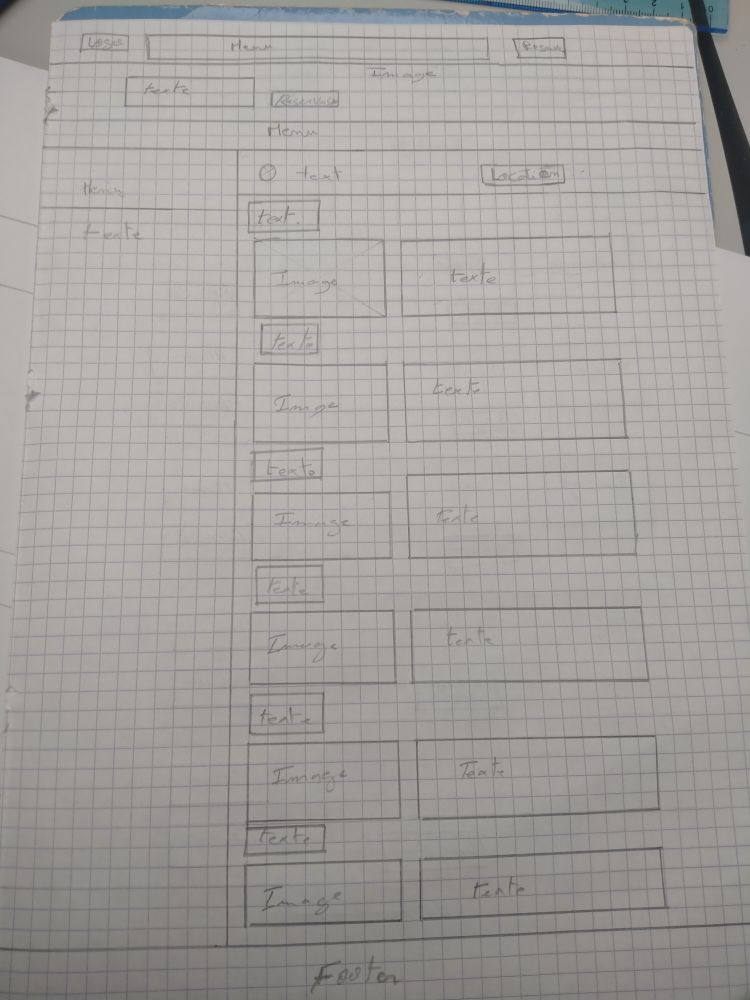 Logo Menu
Image
texte
Reserver
Menu
text Location
Menu
text.
texte
Image texte
texte
Image texte
texte
Image texte
texte
Image texte
texte
Image Texte
texte
Image texte
Footer